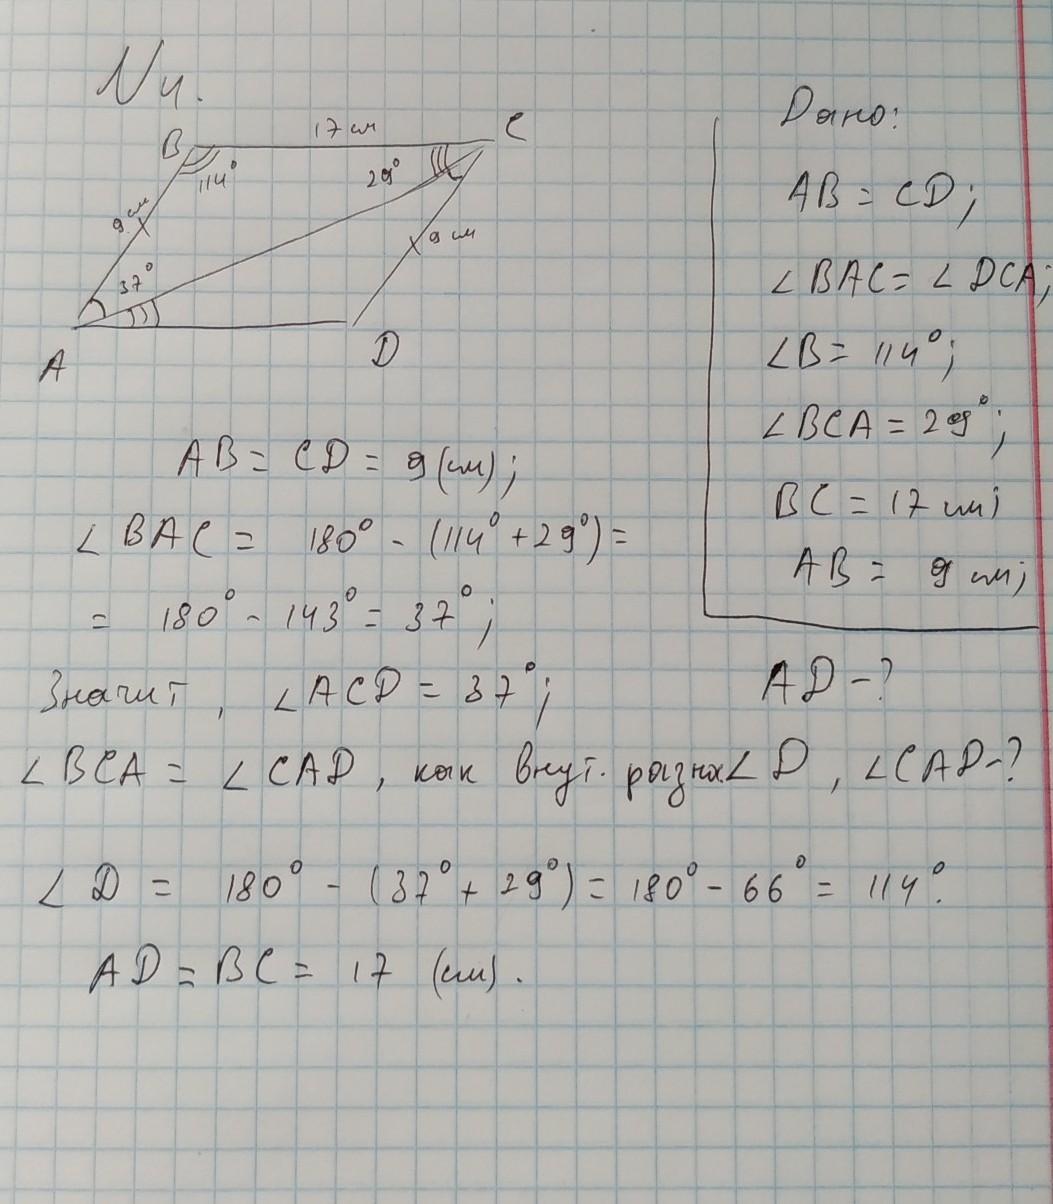 N4.
17 см
B
C
114°
29°
9 см
9 см
37°
A
D
Дано:
AB = CD;
∠BAC = ∠DCA;
∠B = 114°;
∠BCA = 29°;
BC = 17 см;
AB = 9 см;
AD - ?
∠D, ∠CAD - ?
AB = CD = 9 (см);
∠BAC = 180° - (114° + 29°) =
= 180° - 143° = 37°;
Значит, ∠ACD = 37°;
∠BCA = ∠CAD, как внут. разн
∠D = 180° - (37° + 29°) = 180° - 66° = 114°.
AD = BC = 17 (см).